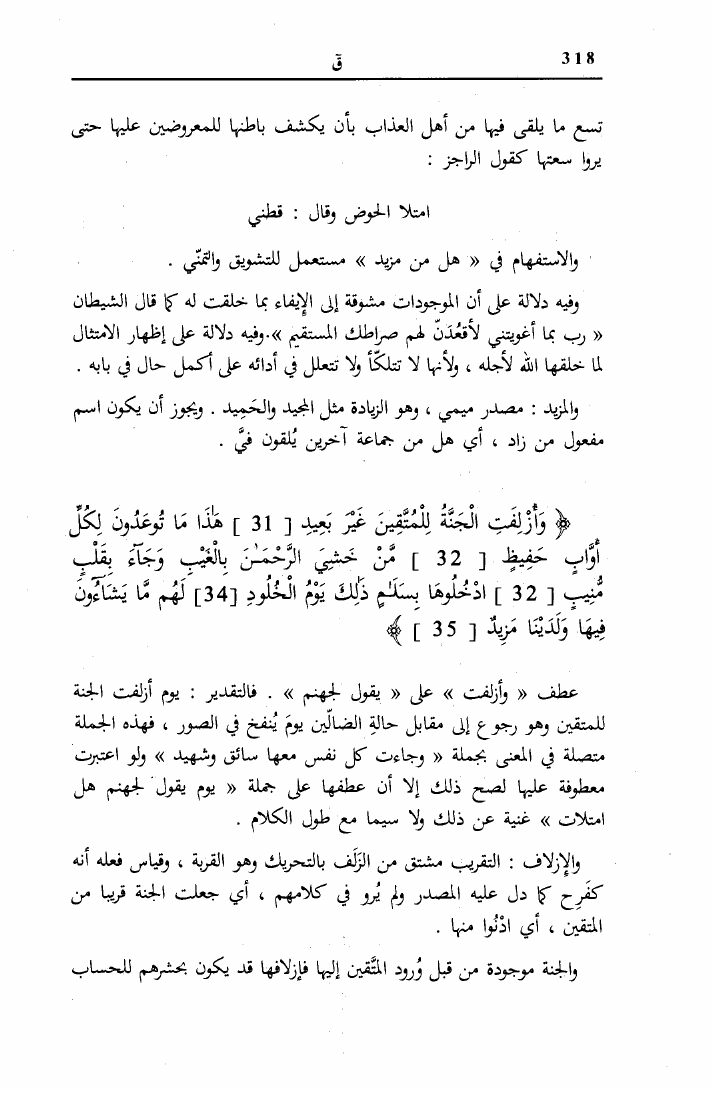 318
قٓ
تسع ما يلقى فيها من أهل العذاب بأن يكشف باطنها للمعروضين عليها حتى
يروا سعتها كقول الراجز :
امتلا الحوض وقال : قطني
والاستفهام في « هل من مزيد » مستعمل للتشويق والتمنّي .
وفيه دلالة على أن الموجودات مشوقة إلى الإيفاء بما خلقت له كما قال الشيطان
« رب بما أغويتني لأقعُدَنّ لهم صراطك المستقيم ».وفيه دلالة على إظهار الامتثال
لما خلقها الله لأجله ، ولأنها لا تتلكّأ ولا تتعلل في أدائه على أكمل حال في بابه .
والمزيد : مصدر ميمي ، وهو الزيادة مثل المجيد والحَمِيد . ويجوز أن يكون اسم
مفعول من زاد ، أي هل من جماعة آخرين يُلقون فيَّ .
﴿ وَأُزْلِفَتِ الْجَنَّةُ لِلْمُتَّقِينَ غَيْرَ بَعِيدٍ [ 31 ] هَٰذَا مَا تُوعَدُونَ لِكُلِّ
أَوَّابٍ حَفِيظٍ [ 32 ] مَّنْ خَشِيَ الرَّحْمَـٰنَ بِالْغَيْبِ وَجَآءَ بِقَلْبٍ
مُّنِيبٍ [ 32 ] ادْخُلُوهَا بِسَلَـٰمٍ ذَٰلِكَ يَوْمُ الْخُلُودِ [34] لَهُم مَّا يَشَآءُونَ
فِيهَا وَلَدَيْنَا مَزِيدٌ [ 35 ] ﴾
عطف « وأزلفت » على « يقول لجهنم » . فالتقدير : يوم أزلفت الجنة
للمتقين وهو رجوع إلى مقابل حالةِ الضالّين يومَ يُنفخ في الصور ، فهذه الجملة
متصلة في المعنى بجملة « وجاءت كل نفس معها سائق وشهيد » ولو اعتبرت
معطوفة عليها لصح ذلك إلا أن عطفها على جملة « يوم يقول لجهنم هل
امتلات » غنية عن ذلك ولا سيما مع طول الكلام .
والإِزلاف : التقريب مشتق من الزَلَف بالتحريك وهو القربة ، وقياس فعله أنه
كفَرِح كما دل عليه المصدر ولم يُرو في كلامهم ، أي جعلت الجنة قريبا من
المتقين ، أي ادْنُوا منها .
والجنة موجودة من قبل وُرود المتَّقين إليها فإزلافها قد يكون بحشرهم للحساب